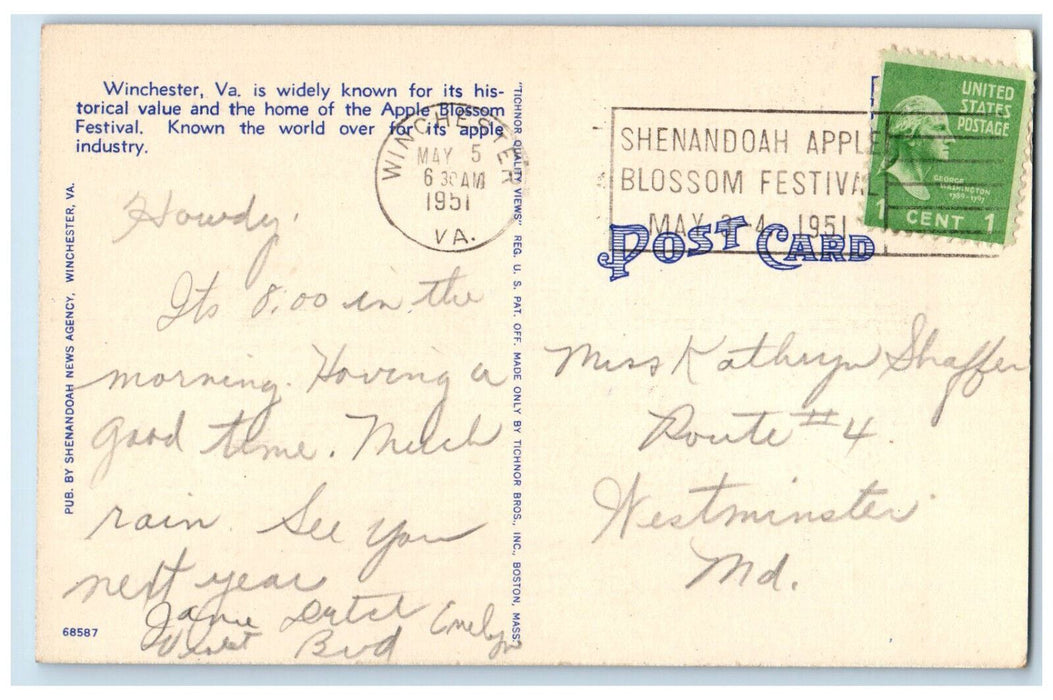 Winchester, Va. is widely known for its his-
torical value and the home of the Apple Blossom
Festival. Known the world over for its apple
industry.
WINCHESTER
MAY 5
6 30 AM
1951
VA.
SHENANDOAH APPLE
BLOSSOM FESTIVAL
MAY 3-4 1951
UNITED
STATES
POSTAGE
GEORGE
WASHINGTON
1789-1797
1 CENT 1
POST CARD
Howdy.
Its 8:00 in the
morning. Having a
good time. Much
rain. See you
next year
Janie Dutch Emelyn
Violet Bud
Miss Kathryn Shaffer
Route #4.
Westminster
Md.
PUB. BY SHENANDOAH NEWS AGENCY, WINCHESTER, VA.
"TICHNOR QUALITY VIEWS" REG. U. S. PAT. OFF. MADE ONLY BY TICHNOR BROS., INC., BOSTON, MASS.
68587